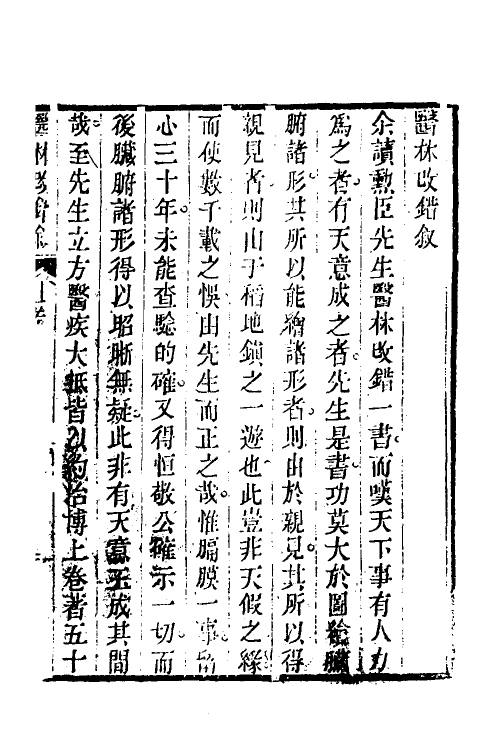 醫林改錯敘
余讀勲臣先生醫林改錯一書而嘆天下事有人力
爲之者有天意成之者先生是書功莫大於圖繪臟
腑諸形其所以能繪諸形者則由於親見其所以得
親見者則由于稻地鎮之一遊也此豈非天假之緣
而使數千載之悞由先生而正之哉惟膈膜一事留
心三十年未能查騐的確又得恒敬公確示一切而
後臟腑諸形得以昭晰無疑此非有天意玉成其間
哉至先生立方醫疾大無皆以約治博上卷著五十
醫林改錯敘 上卷 一